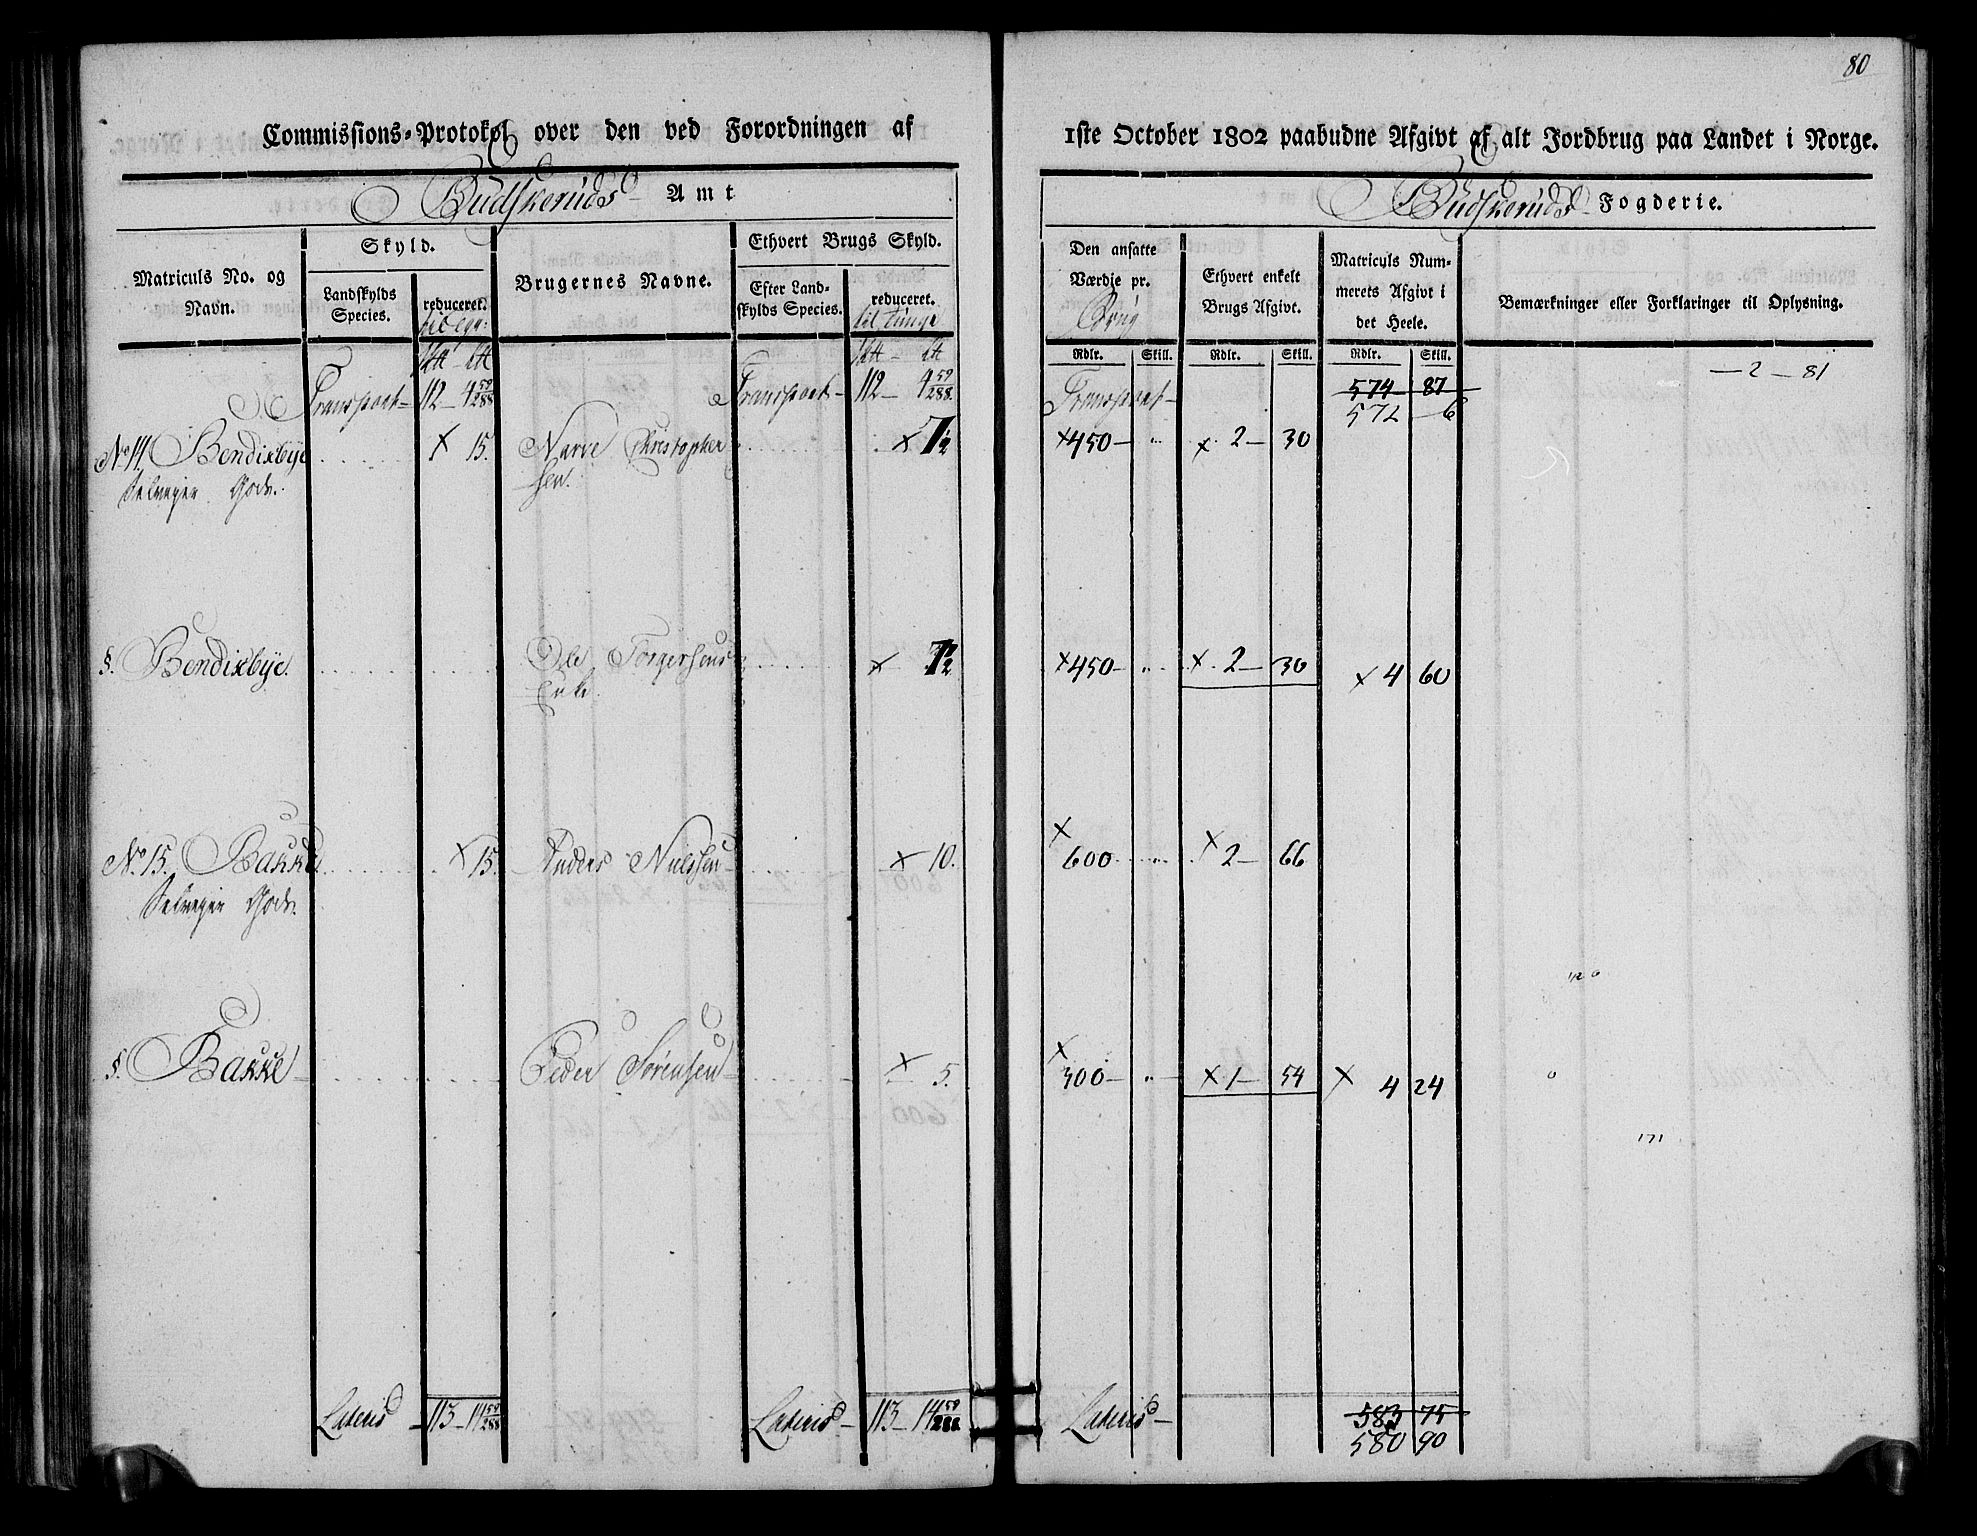 80
Commissions-Protokol over den ved Forordningen af
1ste October 1802 paabudne Afgivt af alt Jordbrug paa Landet i Norge.
Budskeruds Amt
Budskeruds Fogderie.
Matriculs No. og Navn.
Skyld.
Landskylds Species.
reduceret.
Brugernes Navne.
Ethvert Brugs Skyld.
Efter Landskylds Species.
reduceret.
til tunge
Den ansatte Værdie pr.
Brug
Ethvert enkelt Brugs Afgivt.
Matriculs Nummerets Afgivt i det Heele.
Bemærkninger eller Forklaringer til Oplysning.
Rdlr. Skill. Rdlr. Skill. Rdlr. Skill.
— 2 — 81
Transport – 112 – 4 59/288 Transport – 112 – 4 59/288. Transport – 574 – 87
572 – 6
No 14. Bendixbye × 15. Narve Christopher × 7 1/2 × 450 – „ × 2 – 30
Selveyer Gods. sen.
§. Bendixbye. Ole Torgersens × 7 1/2 × 450 – „ × 2 – 30 × 4 60
Enke.
No 15. Bakke × 15. Anders Nielssen – × 10. × 600 „ × 2 – 66
Selveyer Gods.
§. Bakke – Peder Sørensen – × 5. × 300 – „ × 1 – 54 × 4 24
171
Lateris – 113 – 14 59/288 Lateris – 113 – 14 59/288 Lateris – 583 75
580 90